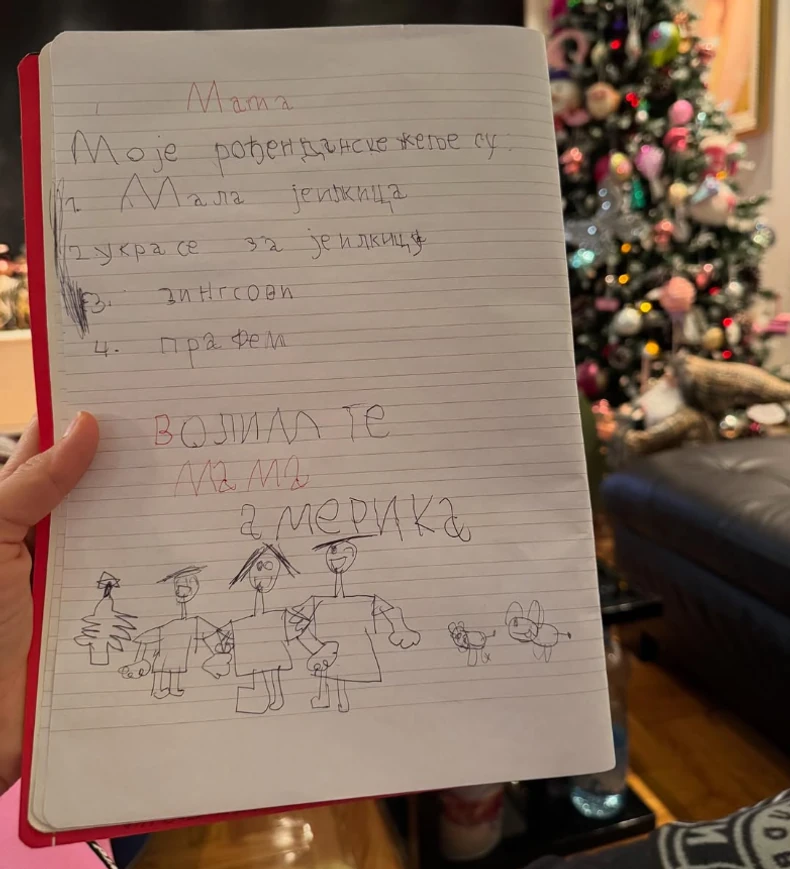 Мама
Моје рођенданске жеље су:
1 Мала јеилкица
2 украсе за јеилкицу
3. зингсови
4. прафем
ВОЛИМ ТЕ
МаМа
аМЕРИКа